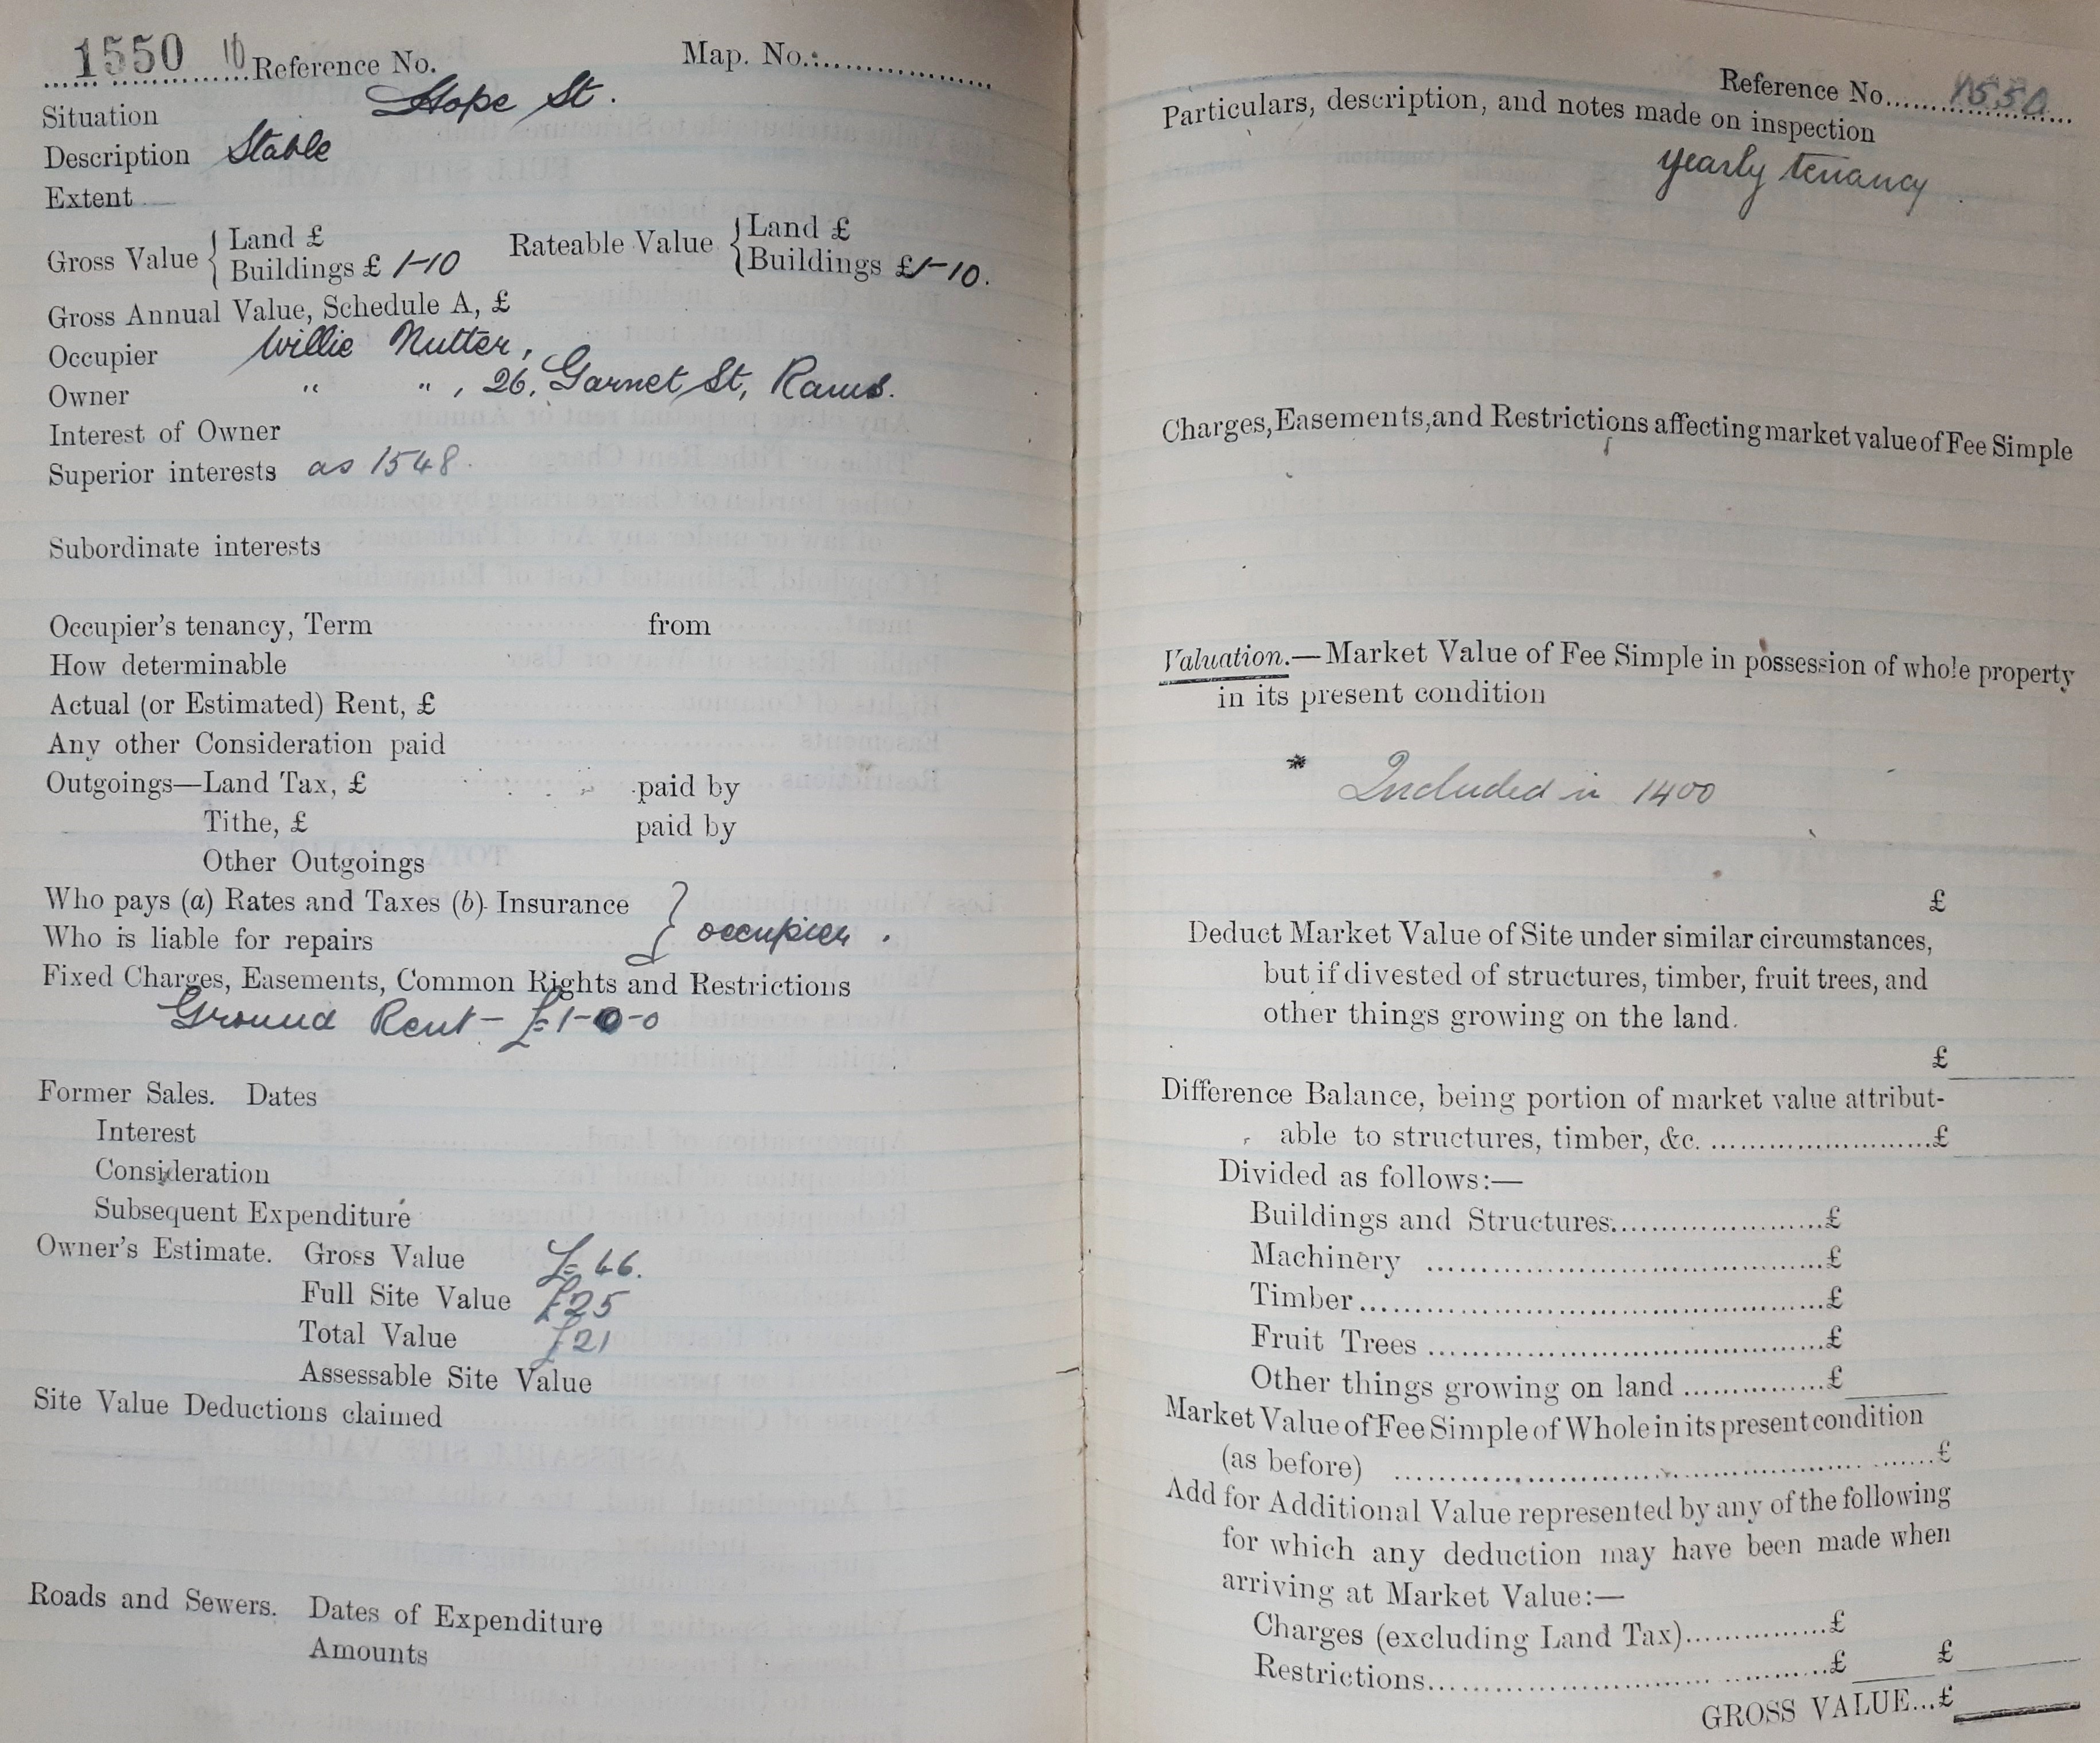 1550 10 Reference No. Map. No.
Situation Hope St.
Description Stable
Extent
Gross Value { Land £
Buildings £ 1-10
Rateable Value { Land £
Buildings £1-10.
Gross Annual Value, Schedule A, £
Occupier Willie Nutter,
Owner " " , 26, Garnet St, Rams.
Interest of Owner
Superior interests as 1548.
Subordinate interests
Occupier's tenancy, Term from
How determinable
Actual (or Estimated) Rent, £
Any other Consideration paid
Outgoings—Land Tax, £ paid by
Tithe, £ paid by
Other Outgoings
Who pays (a) Rates and Taxes (b) Insurance
Who is liable for repairs } occupier.
Fixed Charges, Easements, Common Rights and Restrictions
Ground Rent - £1-0-0
Former Sales. Dates
Interest
Consideration
Subsequent Expenditure
Owner's Estimate. Gross Value £46.
Full Site Value £25
Total Value £21
Assessable Site Value
Site Value Deductions claimed
Roads and Sewers. Dates of Expenditure
Amounts
Reference No. 1550
Particulars, description, and notes made on inspection
yearly tenancy
Charges, Easements, and Restrictions affecting market value of Fee Simple
Valuation.—Market Value of Fee Simple in possession of whole property
in its present condition
* Included in 1400
£
Deduct Market Value of Site under similar circumstances,
but if divested of structures, timber, fruit trees, and
other things growing on the land.
£
Difference Balance, being portion of market value attribut-
able to structures, timber, &c. £
Divided as follows:—
Buildings and Structures £
Machinery £
Timber £
Fruit Trees £
Other things growing on land £
Market Value of Fee Simple of Whole in its present condition
(as before) £
Add for Additional Value represented by any of the following
for which any deduction may have been made when
arriving at Market Value:—
Charges (excluding Land Tax) £
Restrictions £ £
GROSS VALUE... £